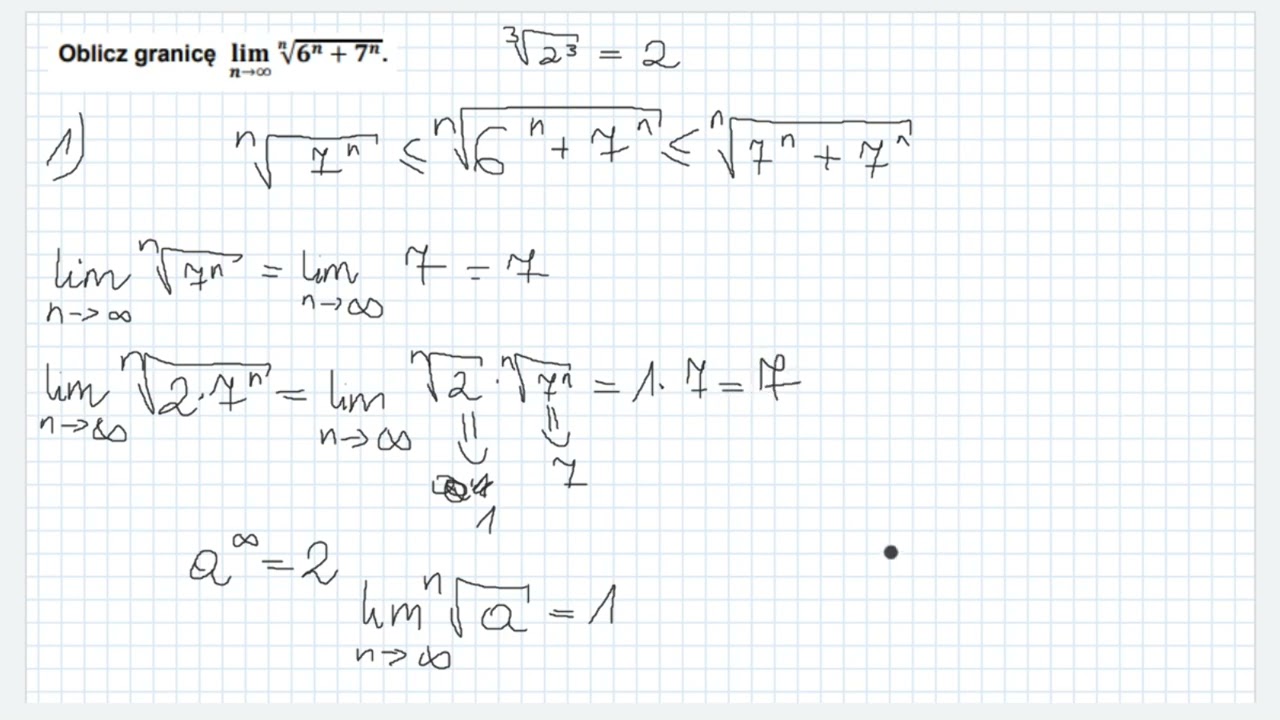 Oblicz granicę lim n→∞ ⁿ√(6ⁿ + 7ⁿ).
³√(2³) = 2
1) ⁿ√(7ⁿ) ≤ ⁿ√(6ⁿ + 7ⁿ) ≤ ⁿ√(7ⁿ + 7ⁿ)
lim n→∞ ⁿ√(7ⁿ) = lim n→∞ 7 = 7
lim n→∞ ⁿ√(2·7ⁿ) = lim n→∞ ⁿ√2 · ⁿ√(7ⁿ) = 1·7 = 7
⇓ ⇓
7
1
a^∞ = 2
lim n→∞ ⁿ√a = 1